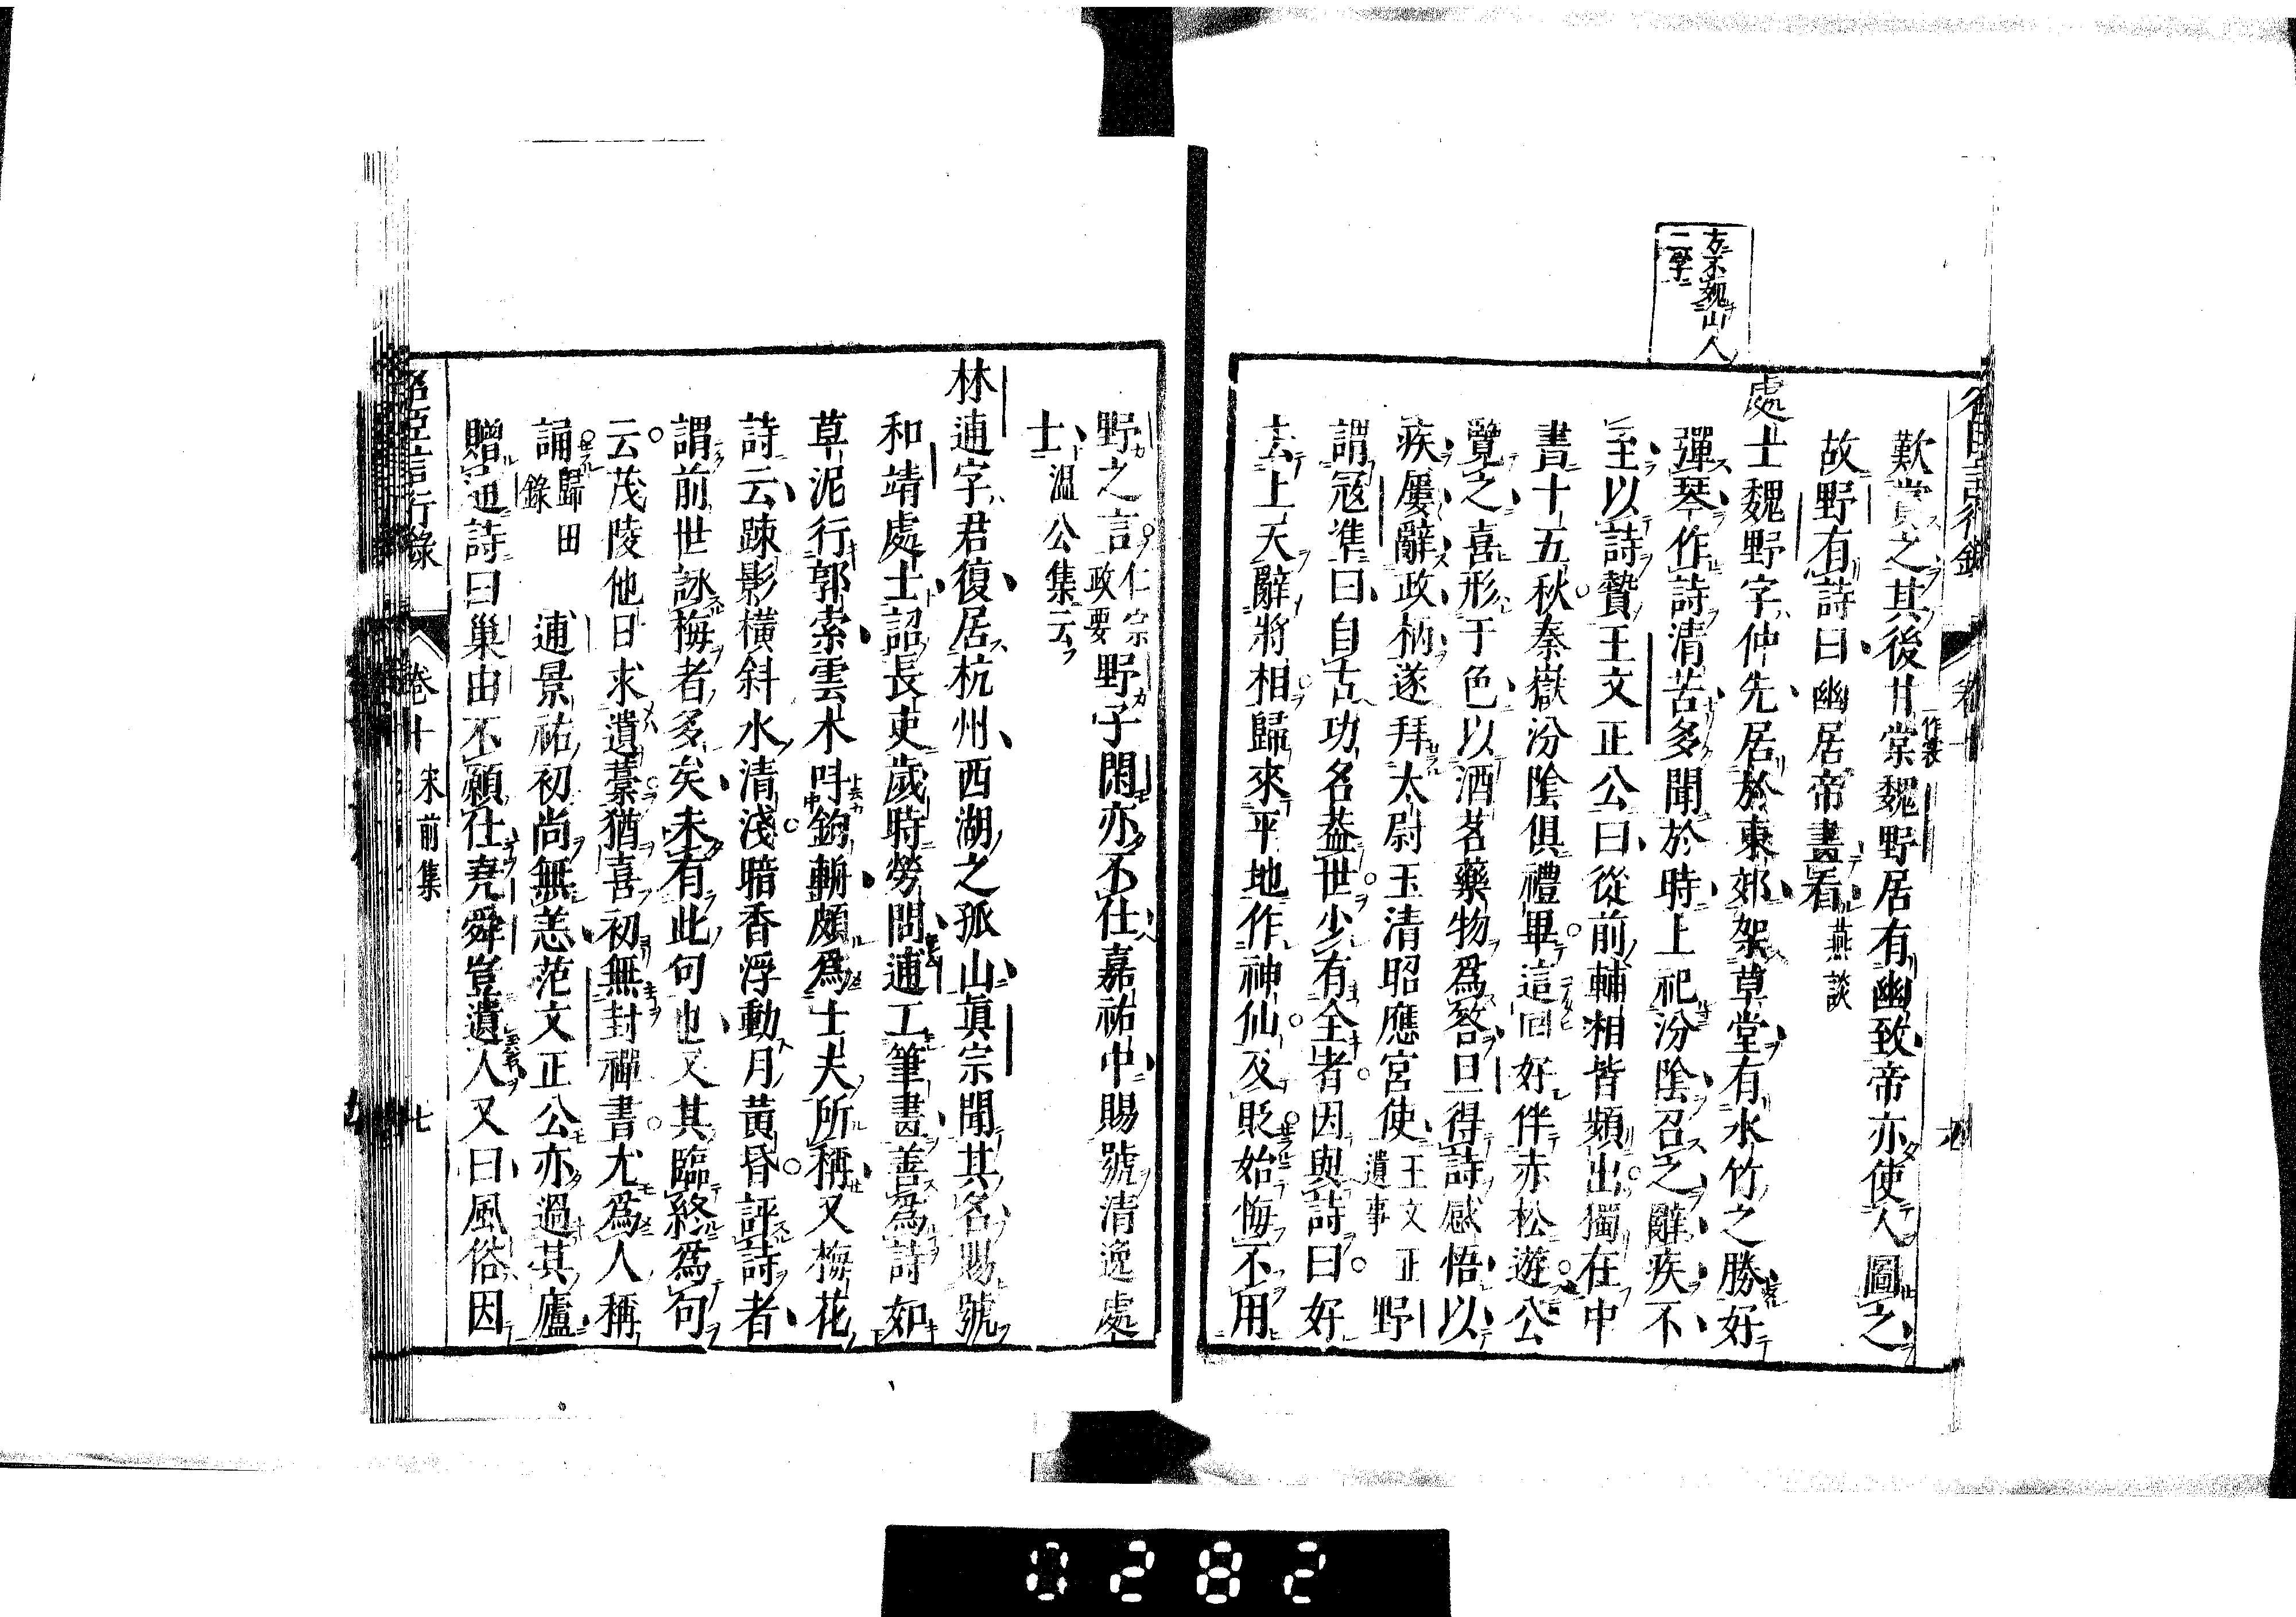 左本魏山人
二字
歎賞之其後甘棠一作裳魏野居有幽致帝亦使人圖之
故野有詩曰幽居帝畫看燕談
處士魏野字仲先居於東郊架草堂有水竹之勝好
彈琴作詩清苦多聞於時上祀汾陰召之辭疾不
至以詩贄王文正公曰從前輔相皆頻出獨在中
書十五秋秦嶽汾陰俱禮畢這回好伴赤松遊公
覽之喜形于色以酒茗藥物爲答旦得詩感悟以
疾屢辭政柄遂拜太尉玉清昭應宮使王文正遺事野
謂寇準曰自古功名蓋世少有全者因與詩曰好
去上天辭將相歸來平地作神仙及貶始悔不用
野之言仁宗政要野子閑亦不仕嘉祐中賜號清逸處
士温公集云
林逋字君復居杭州西湖之孤山眞宗聞其名賜號
和靖處士詔長吏歲時勞問逋工筆畫善爲詩如
草泥行郭索雲木叫鉤輈頗爲士夫所稱又梅花
詩云踈影橫斜水清淺暗香浮動月黃昏評詩者
謂前世詠梅者多矣未有此句也又其臨終爲句
云茂陵他日求遺藁猶喜初無封禪書尤爲人稱
誦歸田錄 逋景祐初尚無恙范文正公亦過其廬
贈逋詩曰巢由不願仕堯舜豈遺人又曰風俗因
名臣言行錄 卷十 宋前集 七
0282